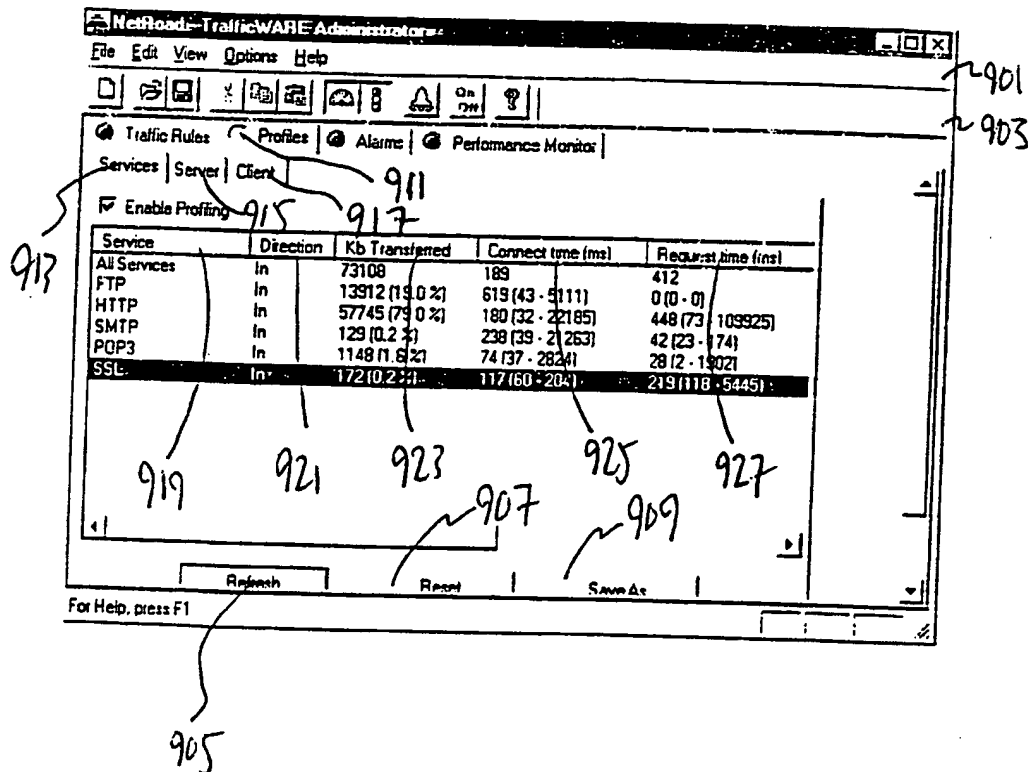 NetRoad - TrafficWARE Administrator
File Edit View Options Help
901
On
Off
903
Traffic Rules Profiles Alarms Performance Monitor
Services Server Client
911
Enable Profiling
915
917
913
Service Direction Kb Transferred Connect time (ms) Request time (ms)
All Services In 73108 189 412
FTP In 13912 (19.0 %) 619 (43 - 5111) 0 (0 - 0)
HTTP In 57745 (79.0 %) 180 (32 - 22185) 448 (73 - 109925)
SMTP In 129 (0.2 %) 238 (39 - 21263) 42 (23 - 174)
POP3 In 1148 (1.6 %) 74 (37 - 2824) 28 (2 - 1902)
SSL In 172 (0.2 %) 117 (60 - 204) 219 (118 - 5445)
919
921
923
925
927
907
909
Refresh Reset Save As
For Help, press F1
905